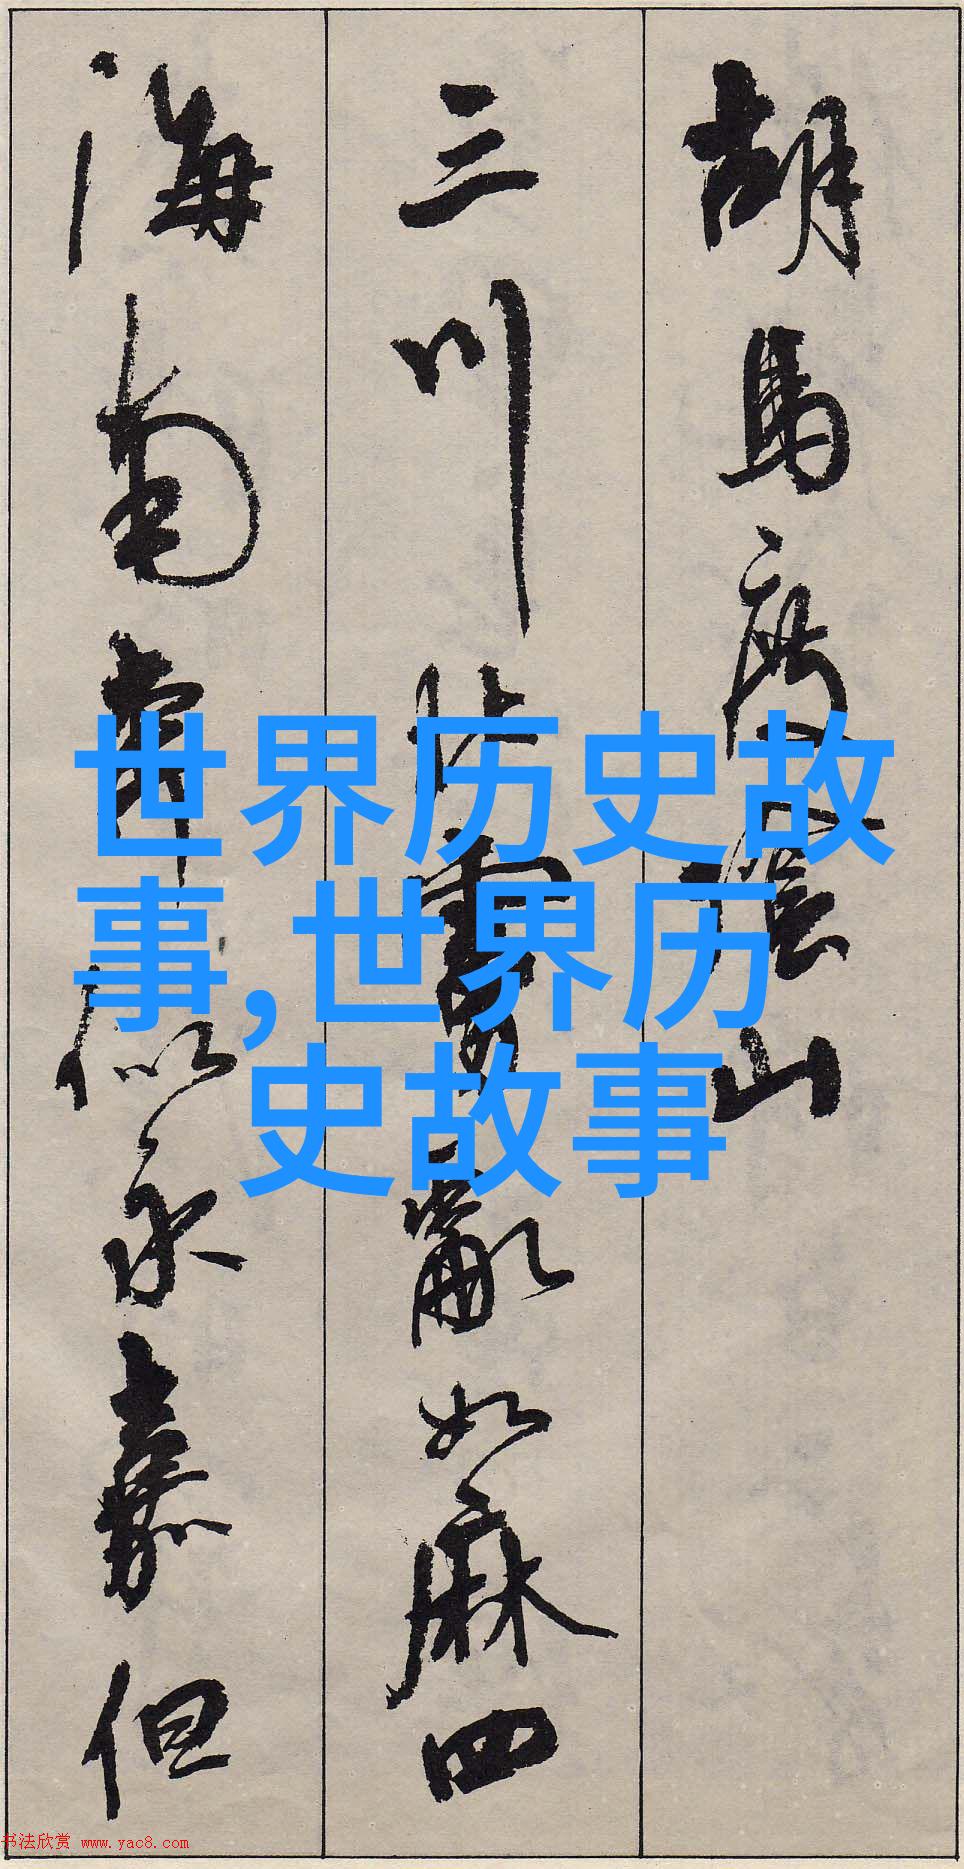 胡馬度陰山
三川北虜亂如麻四
海南奔似永嘉但
世界历史故
事,世界历
史故事
书法欣赏 www.yac8.com